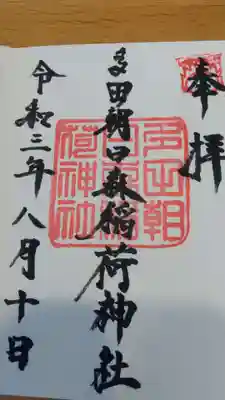 奉拝
多田朝日森稲荷神社
多田朝日森稲荷神社
令和三年八月十日